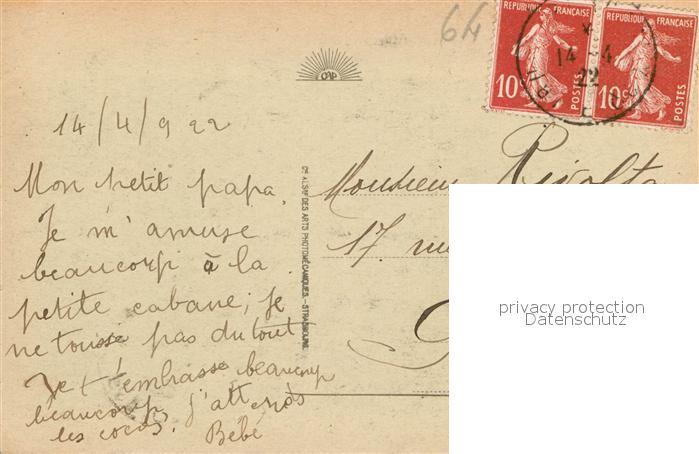 64
REPUBLIQUE FRANÇAISE
10c
POSTES
REPUBLIQUE FRANÇAISE
10c
POSTES
14 - 4
22
CAP
14/4/922
Mon petit papa.
Je m'amuse
beaucoup à la
petite cabane; je
ne tousse pas du tout
Je t'embrasse beaucoup
beaucoup, j'attends
les cocos.
Bébé
Cie ALSne DES ARTS PHOTOMÉCANIQUES.-STRASBOURG
Monsieur Rivolta
17. rue
privacy protection
Datenschutz